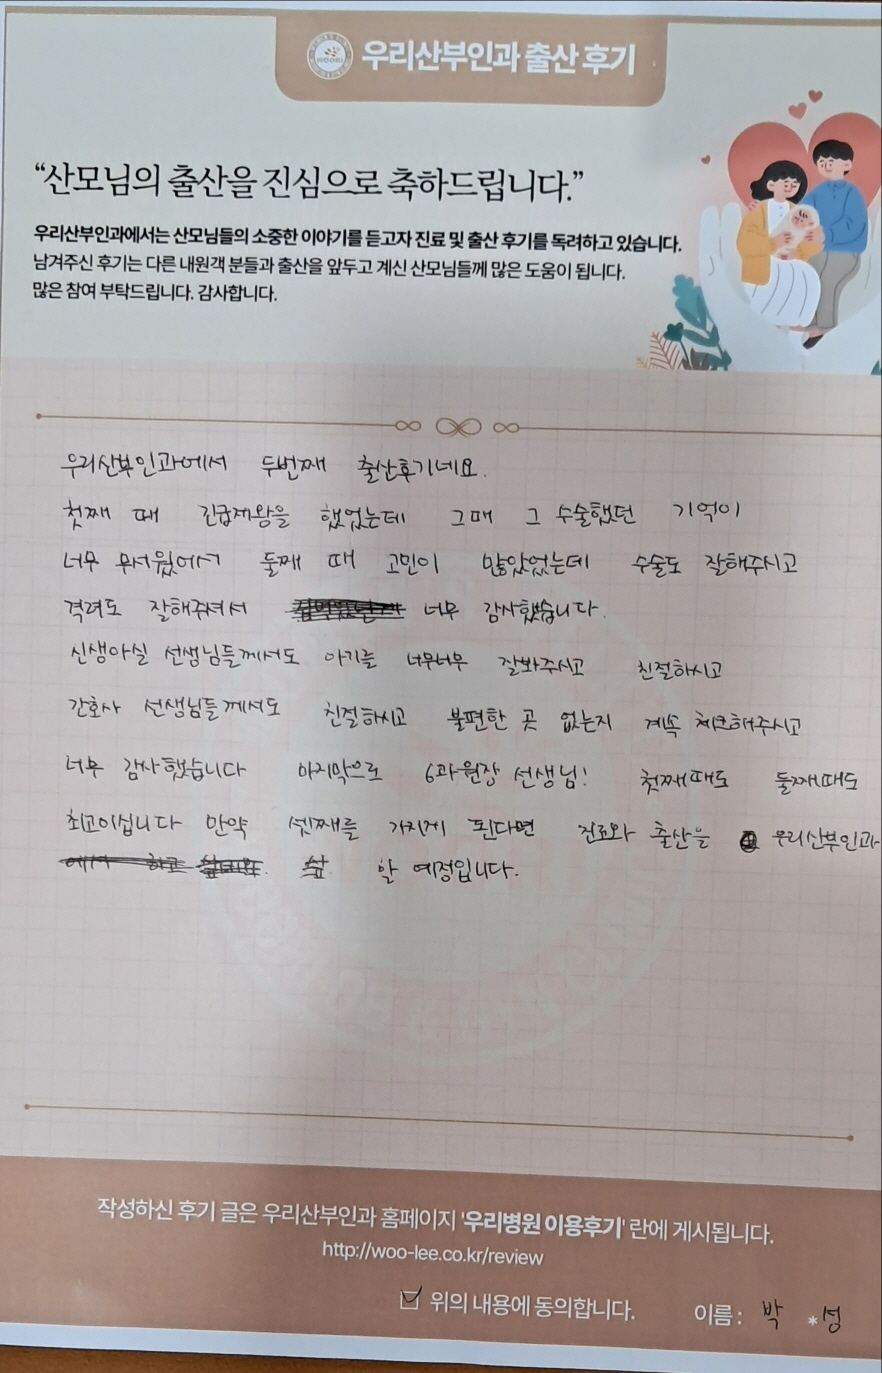 WOORI
우리산부인과 출산 후기
“산모님의 출산을 진심으로 축하드립니다.”
우리산부인과에서는 산모님들의 소중한 이야기를 듣고자 진료 및 출산 후기를 독려하고 있습니다.
남겨주신 후기는 다른 내원객 분들과 출산을 앞두고 계신 산모님들께 많은 도움이 됩니다.
많은 참여 부탁드립니다. 감사합니다.
우리산부인과에서 두번째 출산후기네요.
첫째 때 긴급제왕을 했었는데 그때 그 수술했던 기억이
너무 무서웠어서 둘째 때 고민이 많았었는데 수술도 잘해주시고
격려도 잘해주셔서 너무 감사했습니다.
신생아실 선생님들께서도 아기를 너무너무 잘봐주시고 친절하시고
간호사 선생님들께서도 친절하시고 불편한 곳 없는지 계속 체크해주시고
너무 감사했습니다 마지막으로 6과원장 선생님! 첫째때도 둘째때도
최고이십니다 만약 셋째를 가지게 된다면 진료와 출산을 우리산부인과
할 예정입니다.
작성하신 후기 글은 우리산부인과 홈페이지 '우리병원 이용후기' 란에 게시됩니다.
http://woo-lee.co.kr/review
위의 내용에 동의합니다. 이름 : 박 *성